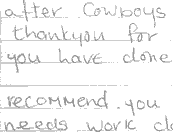 after Cowboys
thankyou for
you have done
recommend. you
needs work